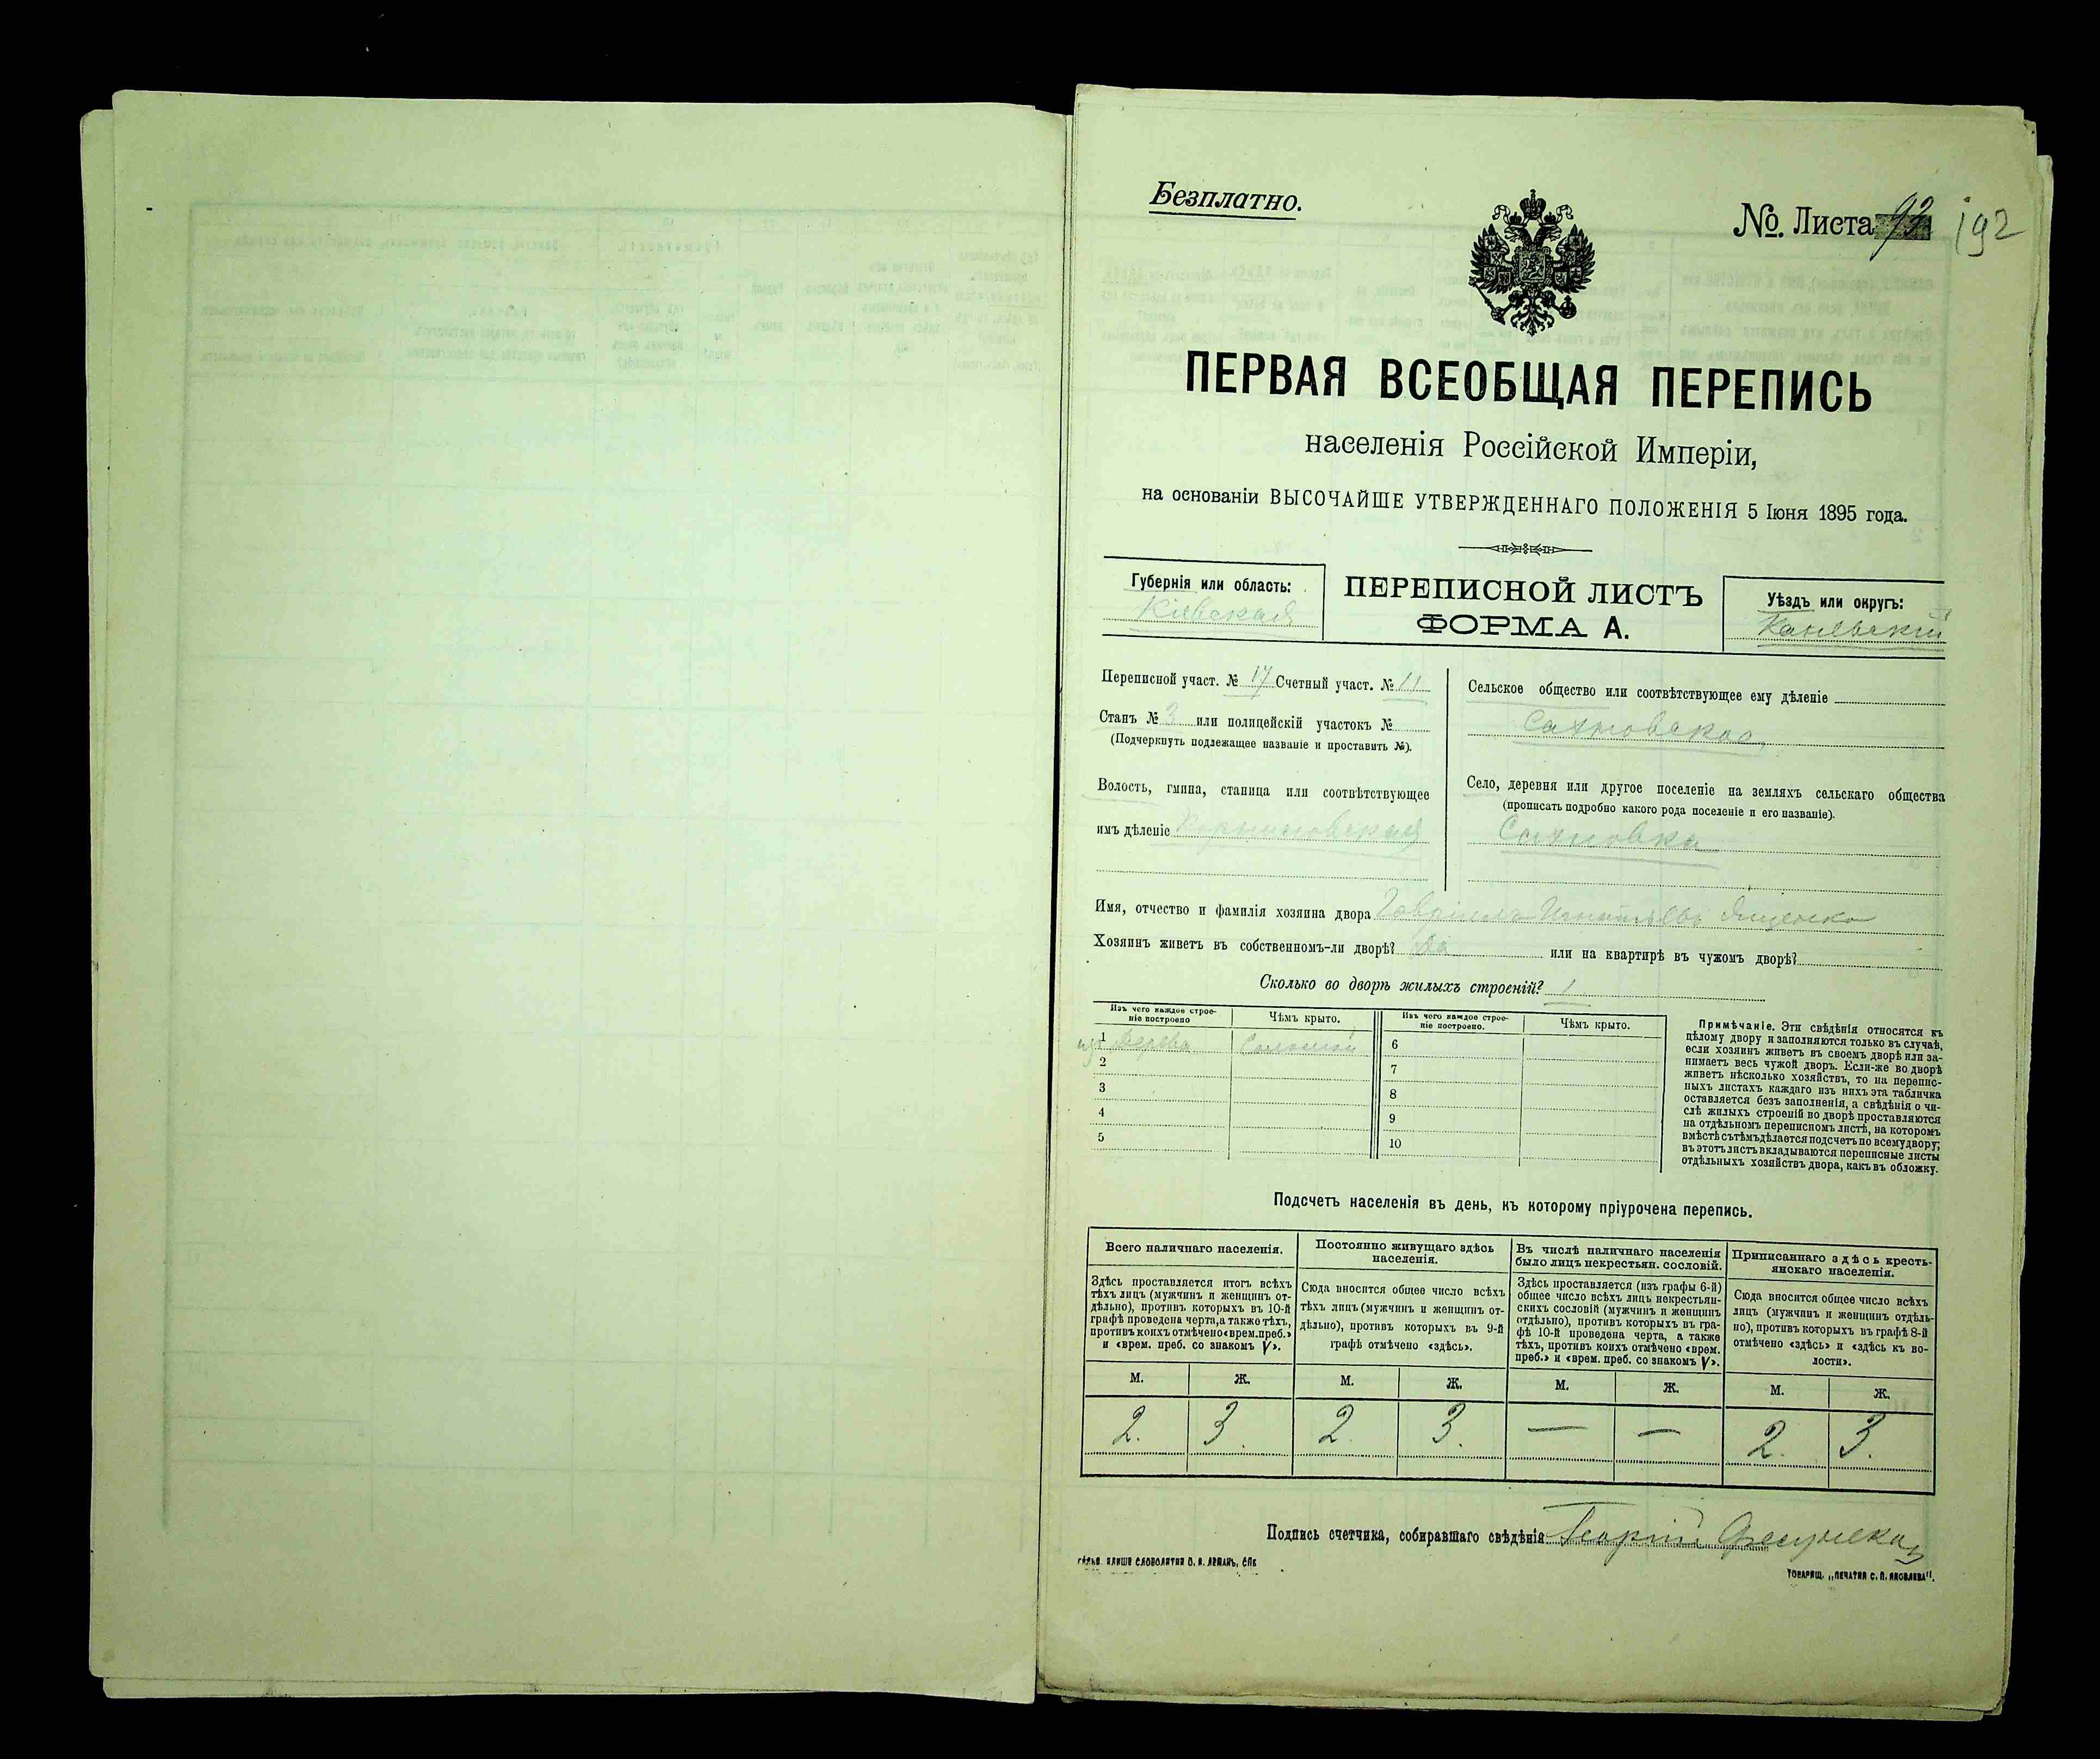 Безплатно.
№ Листа 93 192
ПЕРВАЯ ВСЕОБЩАЯ ПЕРЕПИСЬ
населенія Россійской Имперіи,
на основаніи ВЫСОЧАЙШЕ УТВЕРЖДЕННАГО ПОЛОЖЕНІЯ 5 Іюня 1895 года.
Губернія или область:
Кіевская
ПЕРЕПИСНОЙ ЛИСТЪ
ФОРМА А.
Уѣздъ или округъ:
Каневскій
Переписной участ. № 17 Счетный участ. № 11
Станъ № 3 или полицейскій участокъ №
(Подчеркнуть подлежащее названіе и проставить №).
Волость, гмина, станица или соотвѣтствующее
имъ дѣленіе
Сельское общество или соотвѣтствующее ему дѣленіе
Сахновское
Село, деревня или другое поселеніе на земляхъ сельскаго общества
(прописать подробно какого рода поселеніе и его названіе).
Сахновка
Имя, отчество и фамилія хозяина двора Гавріилъ Игнатьевъ Ященко
Хозяинъ живетъ въ собственномъ-ли дворѣ? Да или на квартирѣ въ чужомъ дворѣ?
Сколько во дворѣ жилыхъ строеній? 1
Изъ чего каждое строе-
ніе построено
Чѣмъ крыто.
1 изъ дерева Соломой
2
3
4
5
Изъ чего каждое строе-
ніе построено.
Чѣмъ крыто.
6
7
8
9
10
Примѣчаніе. Эти свѣдѣнія относятся къ
цѣлому двору и заполняются только въ случаѣ,
если хозяинъ живетъ въ своемъ дворѣ или за-
нимаетъ весь чужой дворъ. Если-же во дворѣ
живетъ нѣсколько хозяйствъ, то на перепис-
ныхъ листахъ каждаго изъ нихъ эта табличка
оставляется безъ заполненія, а свѣдѣнія о чи-
слѣ жилыхъ строеній во дворѣ проставляются
на отдѣльномъ переписномъ листѣ, на которомъ
вмѣстѣ съ тѣмъ дѣлается подсчетъ по всему двору;
въ этотъ листъ вкладываются переписные листы
отдѣльныхъ хозяйствъ двора, какъ въ обложку.
Подсчетъ населенія въ день, къ которому пріурочена перепись.
Всего наличнаго населенія.
Здѣсь проставляется итогъ всѣхъ
тѣхъ лицъ (мужчинъ и женщинъ от-
дѣльно), противъ которыхъ въ 10-й
графѣ проведена черта, а также тѣхъ,
противъ коихъ отмѣчено «врем. преб.»
и «врем. преб. со знакомъ V».
М. Ж.
2. 3.
Постоянно живущаго здѣсь
населенія.
Сюда вносится общее число всѣхъ
тѣхъ лицъ (мужчинъ и женщинъ от-
дѣльно), противъ которыхъ въ 9-й
графѣ отмѣчено «здѣсь».
М. Ж.
2. 3.
Въ числѣ наличнаго населенія
было лицъ некрестьян. сословій.
Здѣсь проставляется (изъ графы 6-й)
общее число всѣхъ лицъ некрестьян-
скихъ сословій (мужчинъ и женщинъ
отдѣльно), противъ которыхъ въ гра-
фѣ 10-й проведена черта, а также
тѣхъ, противъ коихъ отмѣчено «врем.
преб.» и «врем. преб. со знакомъ V».
М. Ж.
— —
Приписаннаго здѣсь кресть-
янскаго населенія.
Сюда вносится общее число всѣхъ
лицъ (мужчинъ и женщинъ отдѣль-
но), противъ которыхъ въ графѣ 8-й
отмѣчено «здѣсь» и «здѣсь къ во-
лости».
М. Ж.
2. 3.
Подпись счетчика, собиравшаго свѣдѣнія Георгій
КЛИШЕ СЛОВОЛИТНИ О. И. ЛЕМАНЪ, СПБ
ТОВАРИЩ. „ПЕЧАТНЯ С. П. ЯКОВЛЕВА".